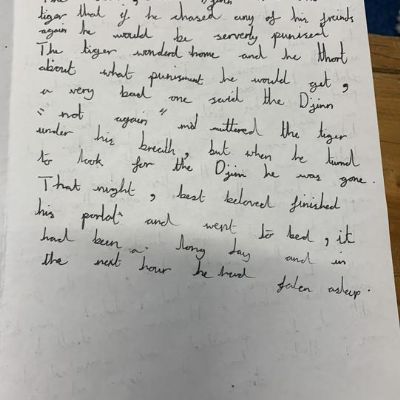 The Djinn
tiger that if he chased any of his freinds
again he would be serverly punised
The tiger wonderd home and he thort
about what punisment he would get,
a very bad one said the Djinn
"not again" muttered the tiger
under his breath, but when he turnd
to look for the Djinn he was gone.
That night, best beloved finished
his and went to bed, it
had been a long day and in
the next hour he had falen asleep.